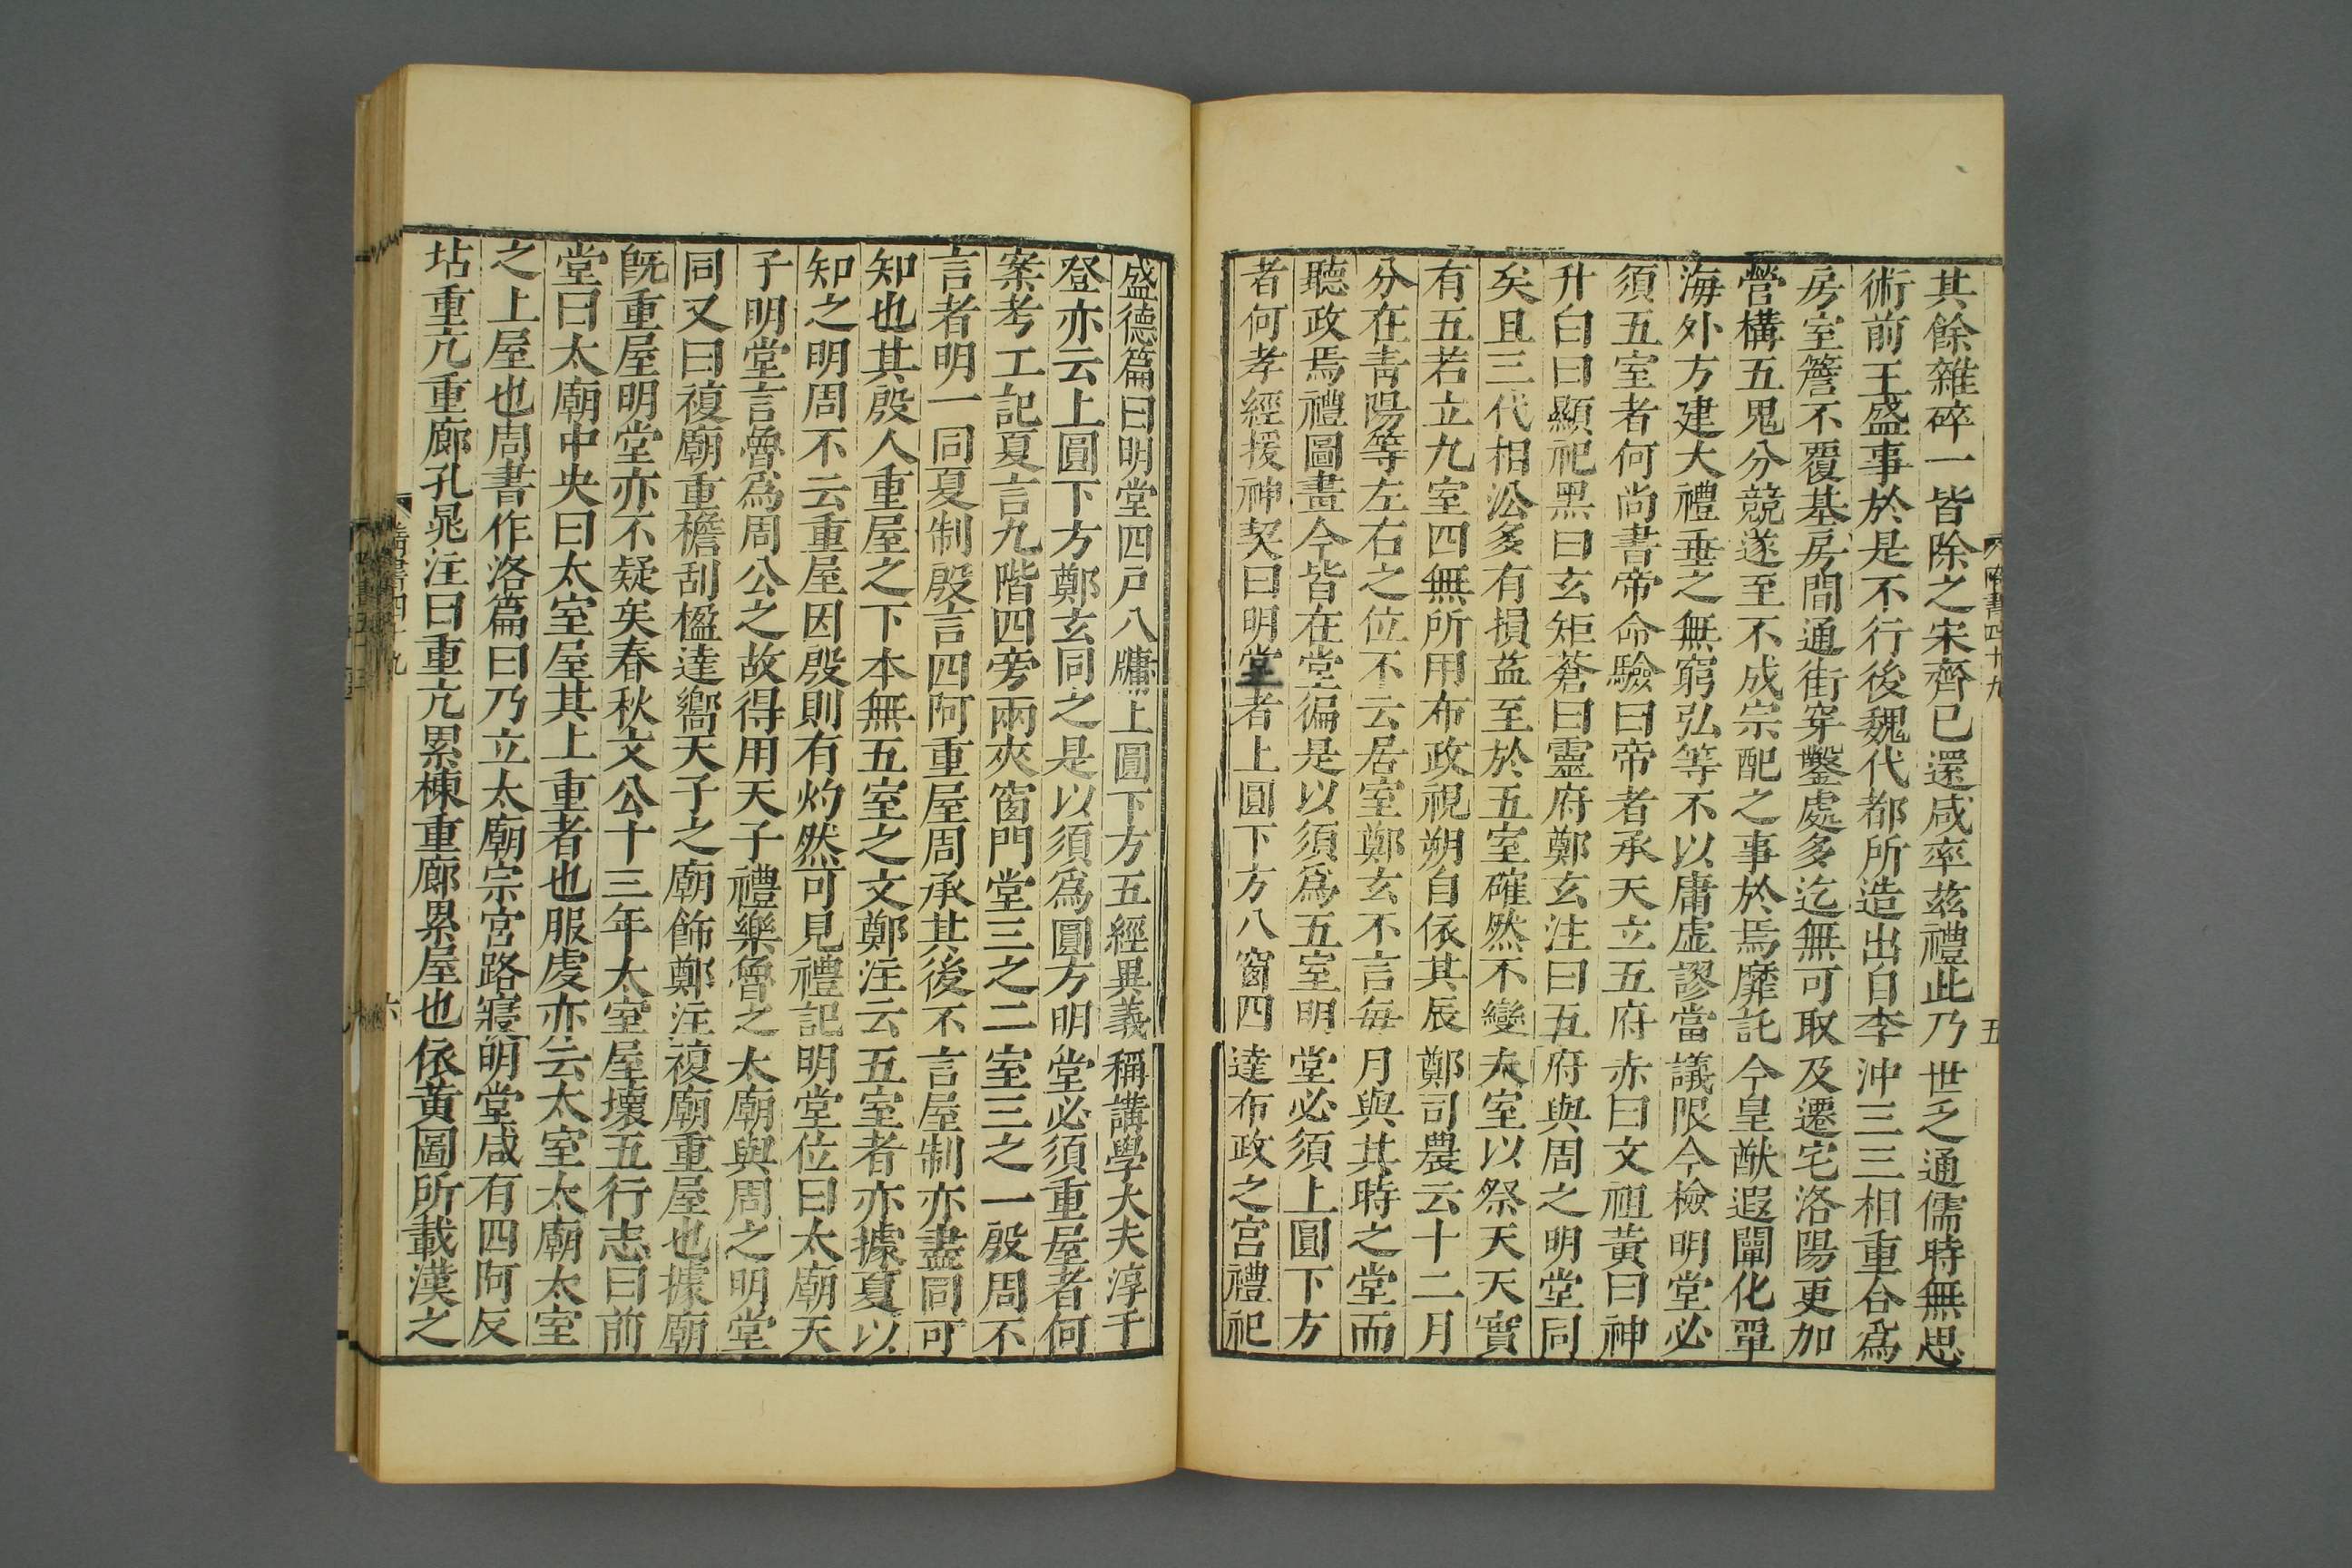 其餘雜碎一皆除之宋齊已還咸率茲禮此乃世乏通儒時無思
術前王盛事於是不行後魏代都所造出自李沖三三相重合爲
房室簷不覆基房間通街穿鑿處多迄無可取及遷宅洛陽更加
營構五鬼分競遂至不成宗配之事於焉靡託今皇猷遐闡化單
海外方建大禮垂之無窮弘等不以庸虛謬當議限今檢明堂必
須五室者何尚書帝命驗曰帝者承天立五府赤曰文祖黃曰神
升白曰顯祀黑曰玄矩蒼曰靈府鄭玄注曰五府與周之明堂同
矣且三代相沿多有損益至於五室確然不變夫室以祭天天實
有五若立九室四無所用布政視朔自依其辰鄭司農云十二月
分在青陽等左右之位不云居室鄭玄亦言每月與其時之堂而
聽政焉禮圖畫今皆在堂徧是以須爲五室明堂必須上圓下方
者何孝經援神契曰明堂者上圓下方八窗四達布政之宮禮祀
盛德篇曰明堂四戶八牖上圓下方五經異義稱講學大夫淳于
登亦云上圓下方鄭玄同之是以須爲圓方明堂必須重屋者何
案考工記夏言九階四旁兩夾窗門堂三之二室三之一殷周不
言者明一同夏制殷言四阿重屋周承其後不言屋制亦盡同可
知也其殷人重屋之下本無五室之文鄭注云五室者亦據夏以
知之明周不云重屋因殷則有灼然可見禮記明堂位曰太廟天
子明堂言魯爲周公之故得用天子禮樂魯之太廟與周之明堂
同又曰複廟重檐刮楹達嚮天子之廟飾鄭注複廟重屋也據廟
旣重屋明堂亦不疑矣春秋文公十三年太室屋壞五行志曰前
堂曰太廟中央曰太室屋其上重者也服虔亦云太室太廟太室
之上屋也周書作洛篇曰乃立太廟宗宮路寢明堂咸有四阿反
坫重亢重廊孔晁注曰重亢累棟重廊累屋也依黃圖所載漢之
隋書四十九
六